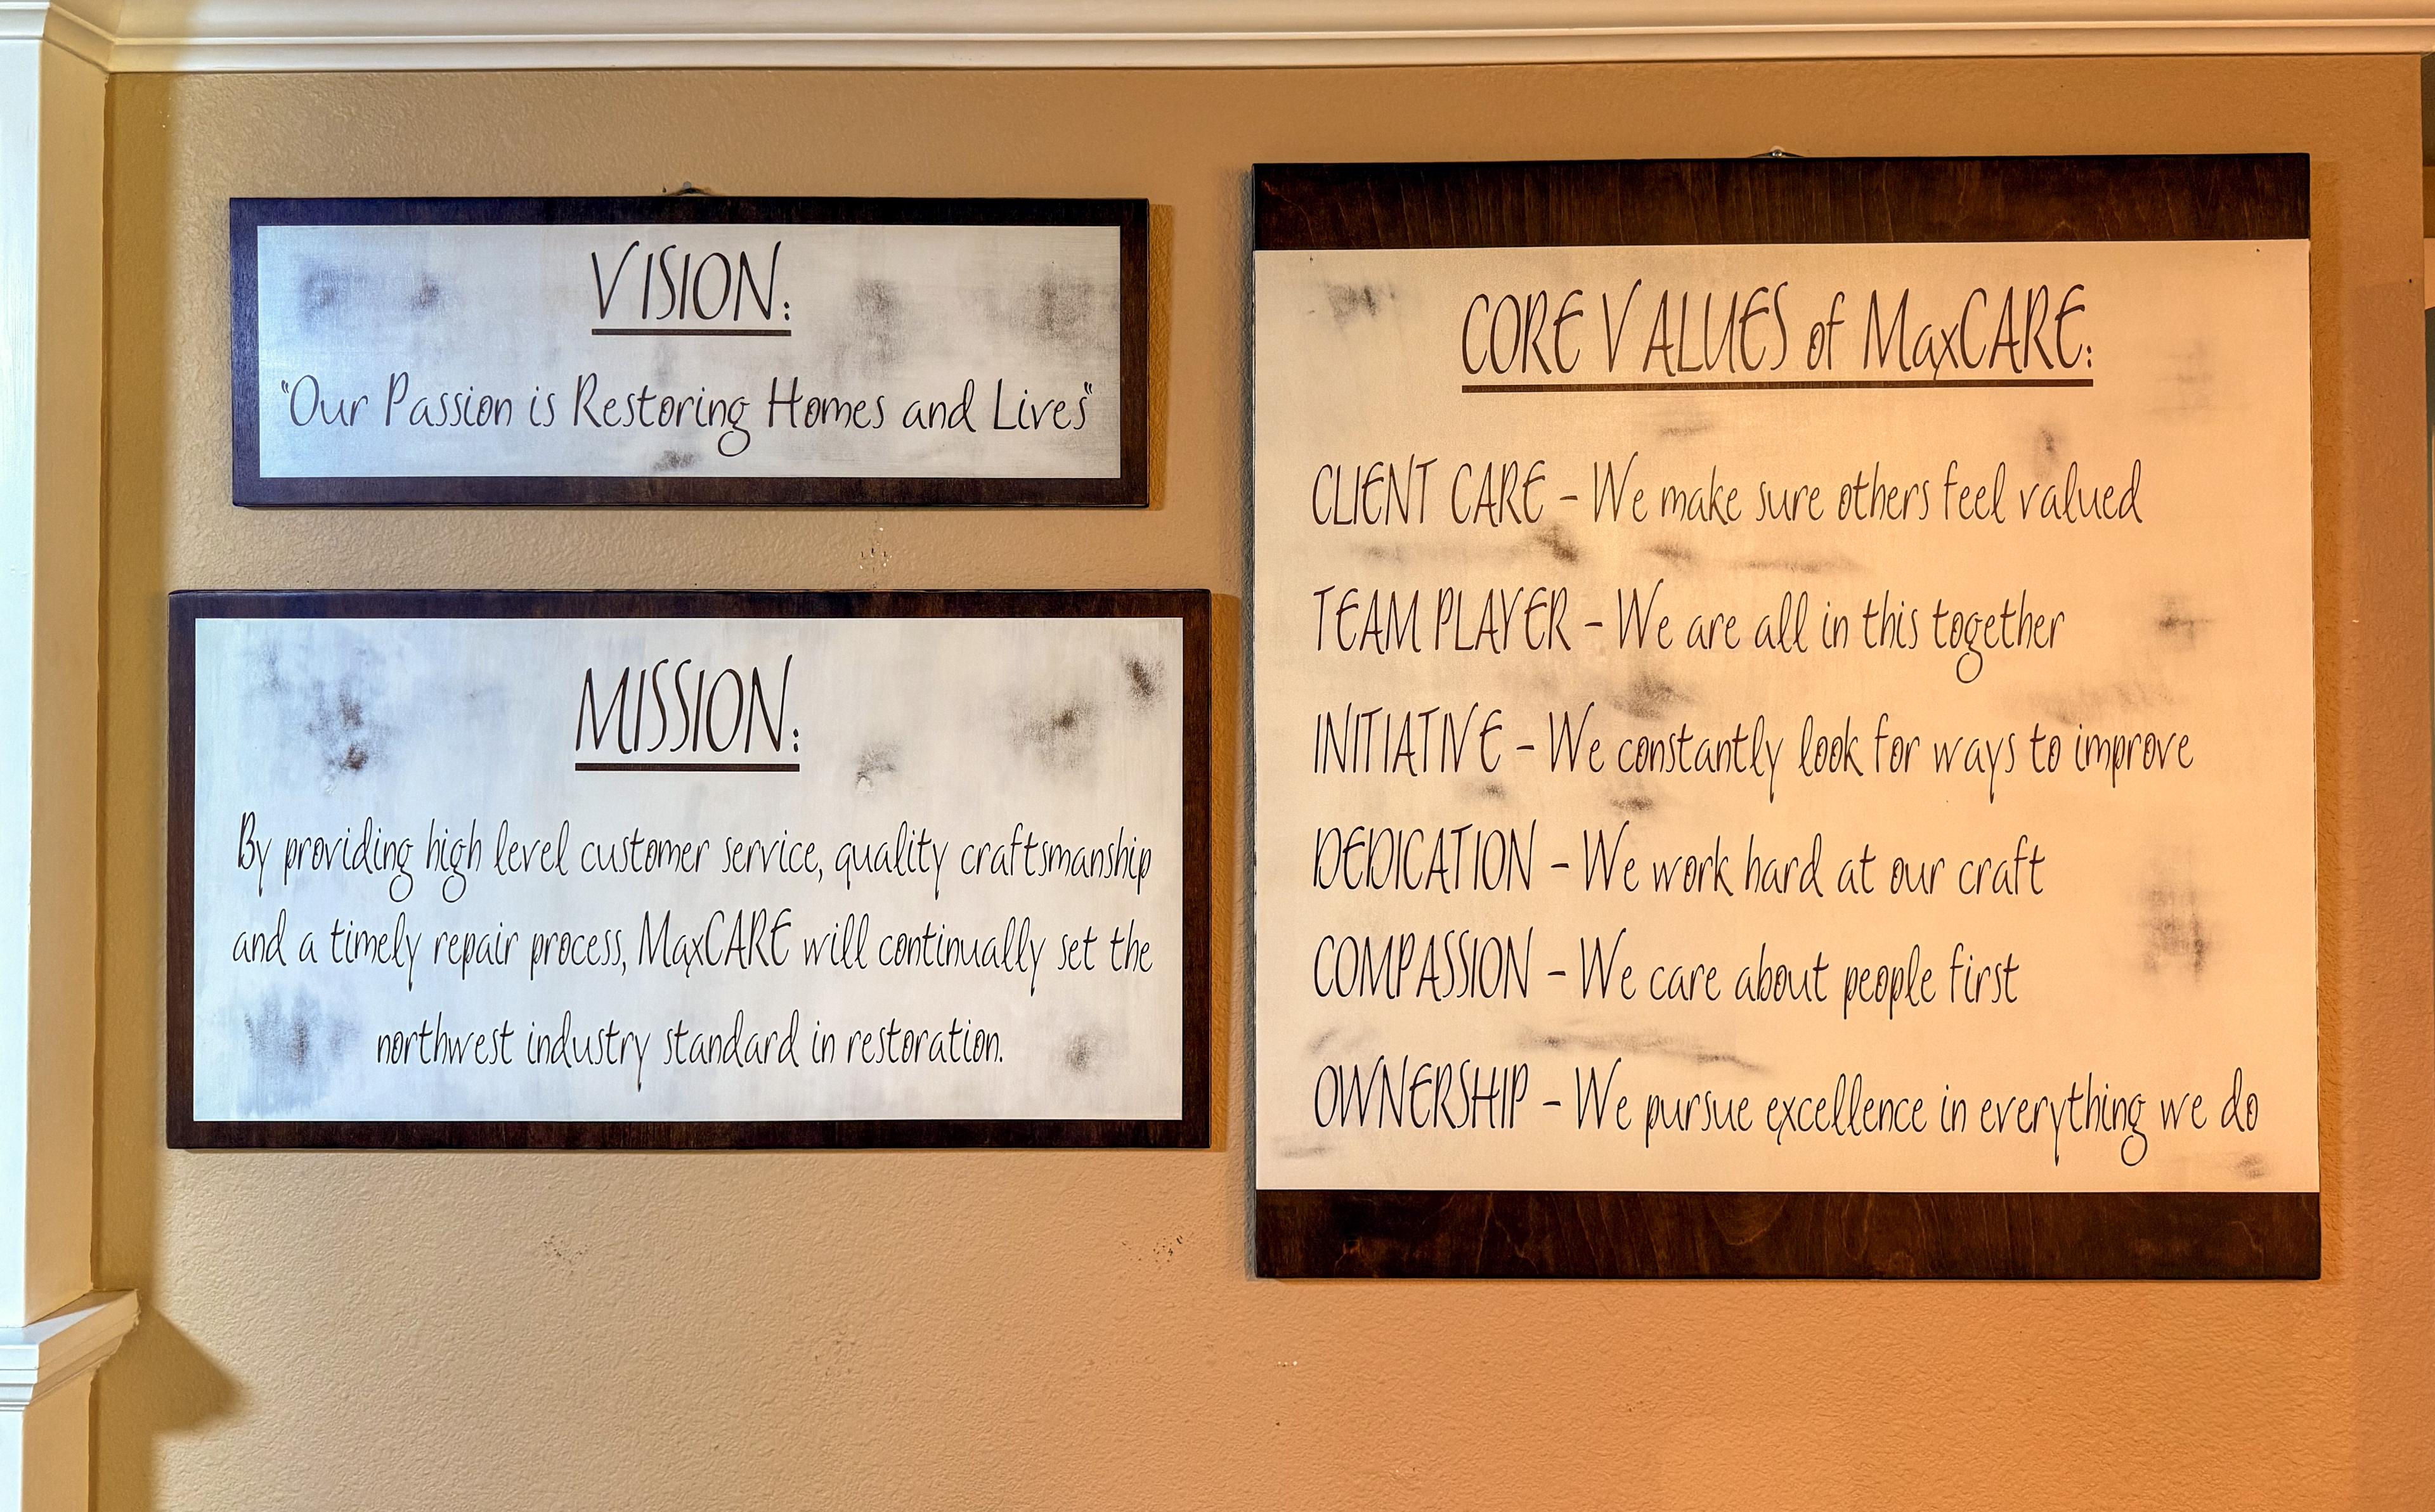 VISION:
"Our Passion is Restoring Homes and Lives"
MISSION:
By providing high level customer service, quality craftsmanship
and a timely repair process, MaxCARE will continually set the
northwest industry standard in restoration.
CORE VALUES of MaxCARE:
CLIENT CARE - We make sure others feel valued
TEAM PLAYER - We are all in this together
INITIATIVE - We constantly look for ways to improve
DEDICATION - We work hard at our craft
COMPASSION - We care about people first
OWNERSHIP - We pursue excellence in everything we do